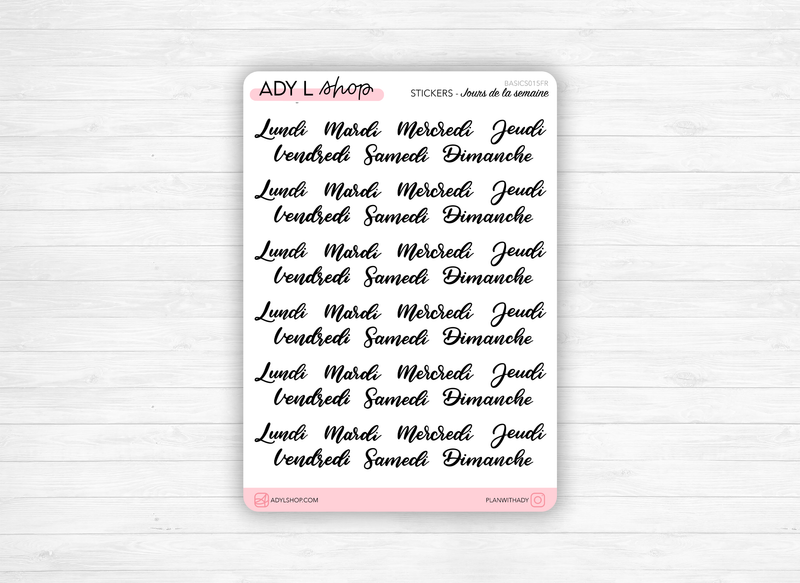 ADY L shop
BASICS015FR
STICKERS - Jours de la semaine
Lundi Mardi Mercredi Jeudi
Vendredi Samedi Dimanche
Lundi Mardi Mercredi Jeudi
Vendredi Samedi Dimanche
Lundi Mardi Mercredi Jeudi
Vendredi Samedi Dimanche
Lundi Mardi Mercredi Jeudi
Vendredi Samedi Dimanche
Lundi Mardi Mercredi Jeudi
Vendredi Samedi Dimanche
Lundi Mardi Mercredi Jeudi
Vendredi Samedi Dimanche
ADYLSHOP.COM
PLANWITHADY